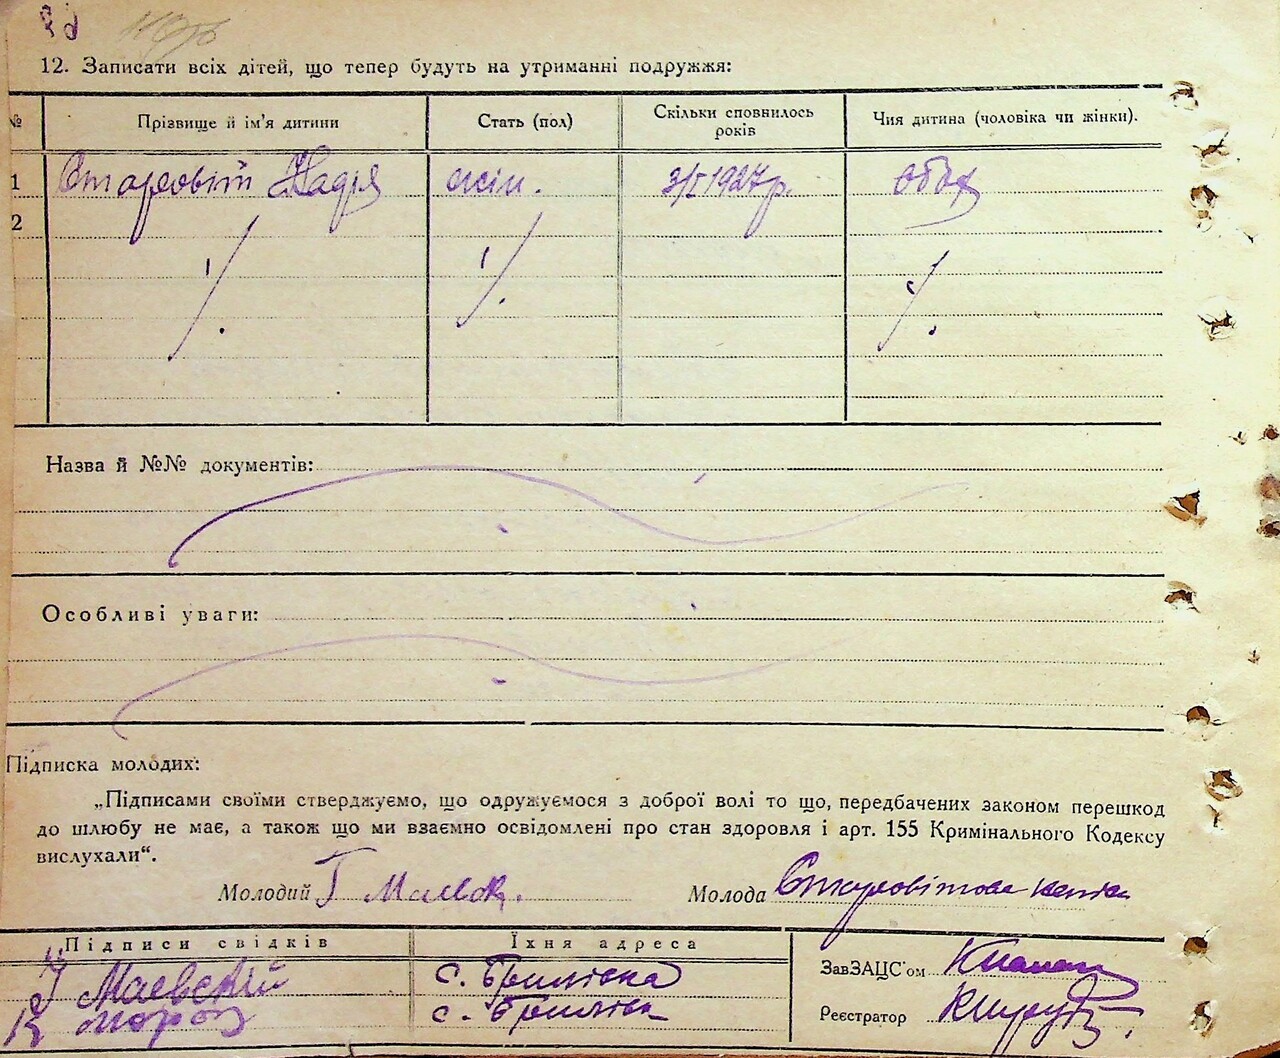 12. Записати всіх дітей, що тепер будуть на утриманні подружжя:
№ Прізвище й ім'я дитини Стать (пол) Скільки сповнилось років Чия дитина (чоловіка чи жінки).
1 Старовіт Надія жін. 3/I 1927 р. обох
2
Назва й №№ документів:
Особливі уваги:
Підписка молодих:
„Підписами своїми стверджуємо, що одружуємося з доброї волі то що, передбачених законом перешкод
до шлюбу не має, а також що ми взаємно освідомлені про стан здоровля і арт. 155 Кримінального Кодексу
вислухали“.
Молодий Г Маєвск. Молода Старовітова
Підписи свідків Їхня адреса
Маєвскій с. Бриліска ЗавЗАЦС'ом
Мороз с. Реєстратор